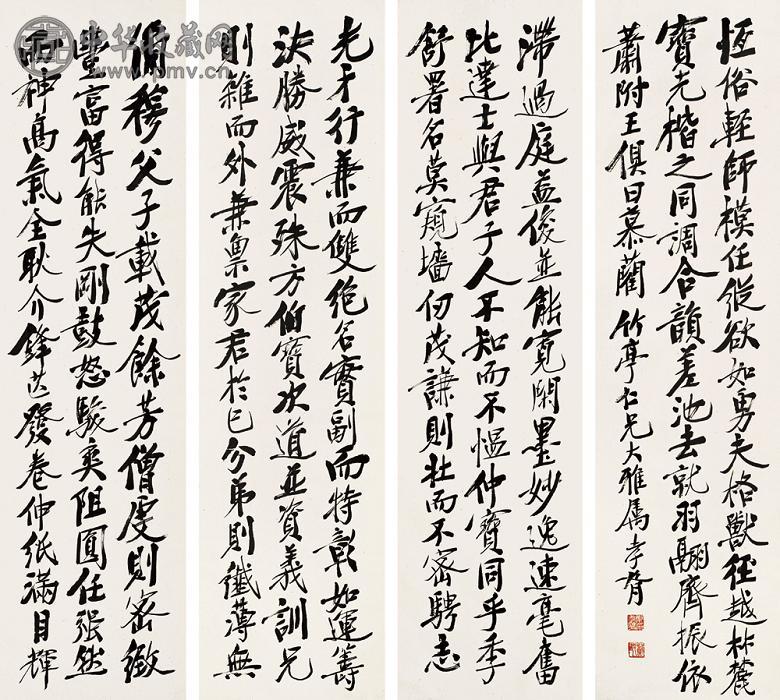 簡穆父子載茂餘芳僧虔則密緻
豐富得能失剛鼓怒駿爽阻圓任強然
而神高氣全耿介鋒芒發卷伸紙滿目輝
光才行兼而雙絕名實副而特彰如運籌
決勝威震殊方伯寶次道並資義訓兄
則雜而外兼稟家君於已分弟則纖薄無
滯過庭益俊並能寬閑墨妙逸速毫奮
比達士與君子人不知而不慍仲寶同乎季
舒署名莫窺墻仞茂謙則壯而不密騁志
恆俗輕師模任縱欲如勇夫格獸徑越林麓
寶光楷之同調合韻差池去就羽翮齊振依
蕭附王俱曰慕藺 竹亭仁兄大雅屬 孝胥
中华收藏网
www.pmv.cn